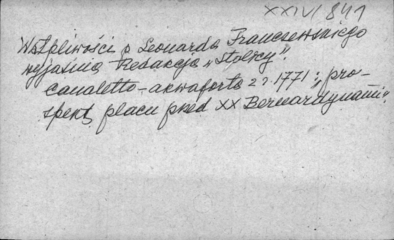 XXIV/841
Wątpliwości p Leonarda Franczewskiego
wyjaśnia Redakcja „Stolicy".
canaletto – akwaforta z r. 1771: „pro-
spekt placu przed XX Bernardynami".